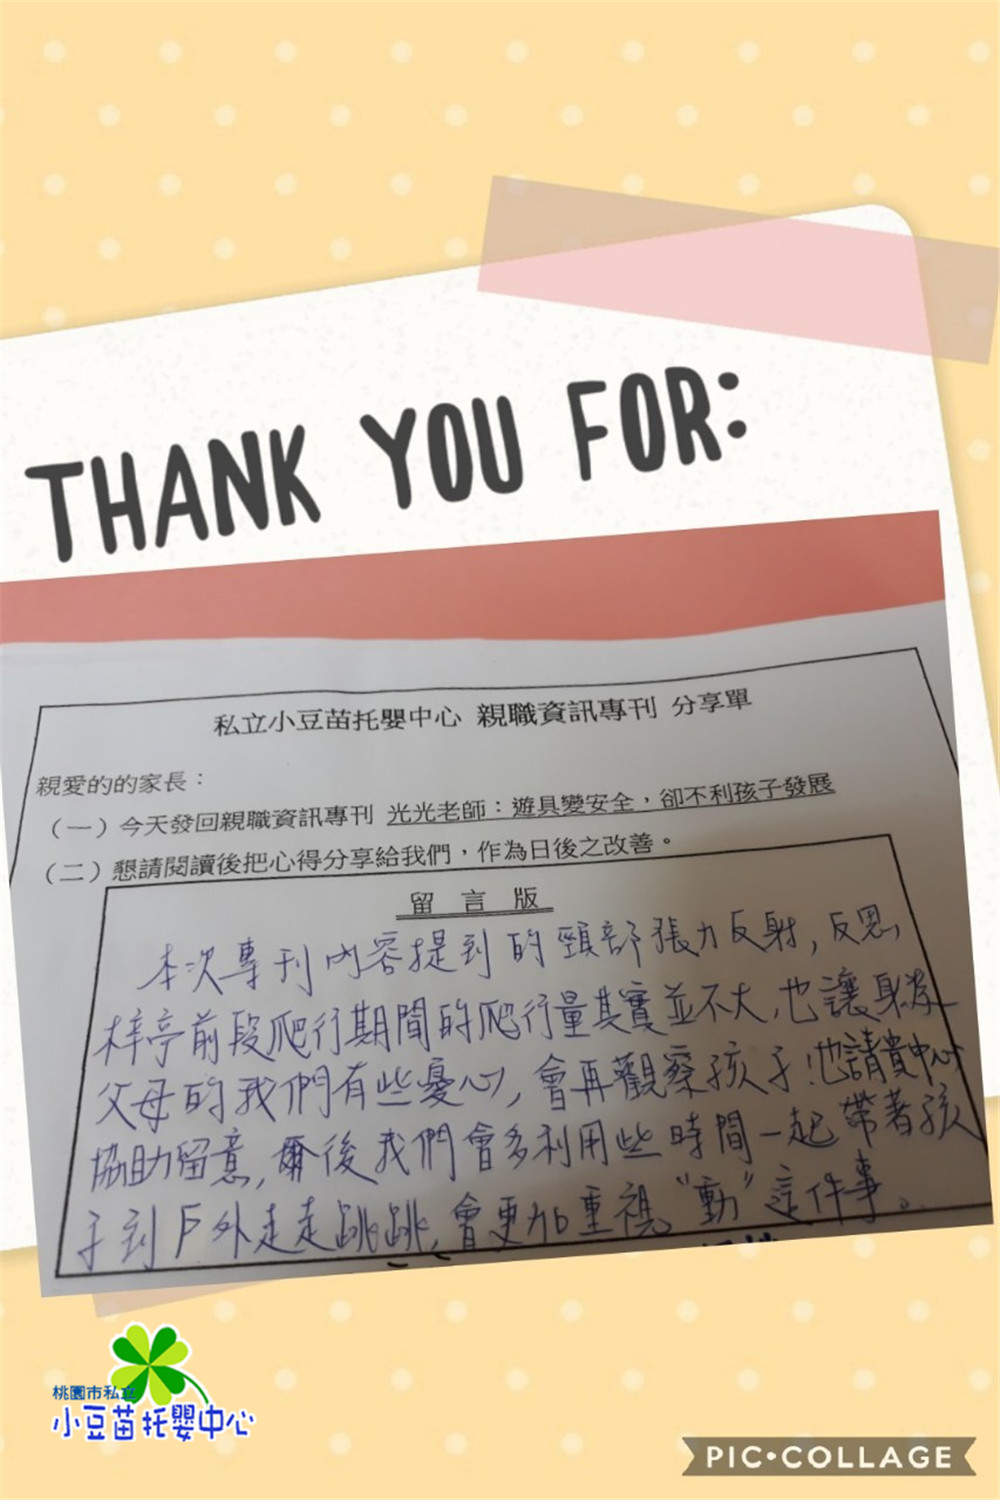 THANK YOU FOR:
私立小豆苗托嬰中心 親職資訊專刊 分享單
親愛的的家長：
（一）今天發回親職資訊專刊 光光老師：遊具變安全，卻不利孩子發展
（二）懇請閱讀後把心得分享給我們，作為日後之改善。
留 言 版
本次專刊內容提到的頸部張力反射，反思
梓亭前段爬行期間的爬行量其實並不大，也讓身為
父母的我們有些憂心，會再觀察孩子！也請貴中心
協助留意，爾後我們會多利用些時間一起帶著孩
子到戶外走走跳跳，會更加重視“動”這件事。
桃園市私立
小豆苗托嬰中心
PIC•COLLAGE